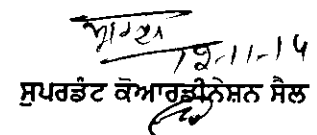 19-11-14
ਸੁਪਰਡੰਟ ਕੋਆਰਡੀਨੇਸ਼ਨ ਸੈਲ